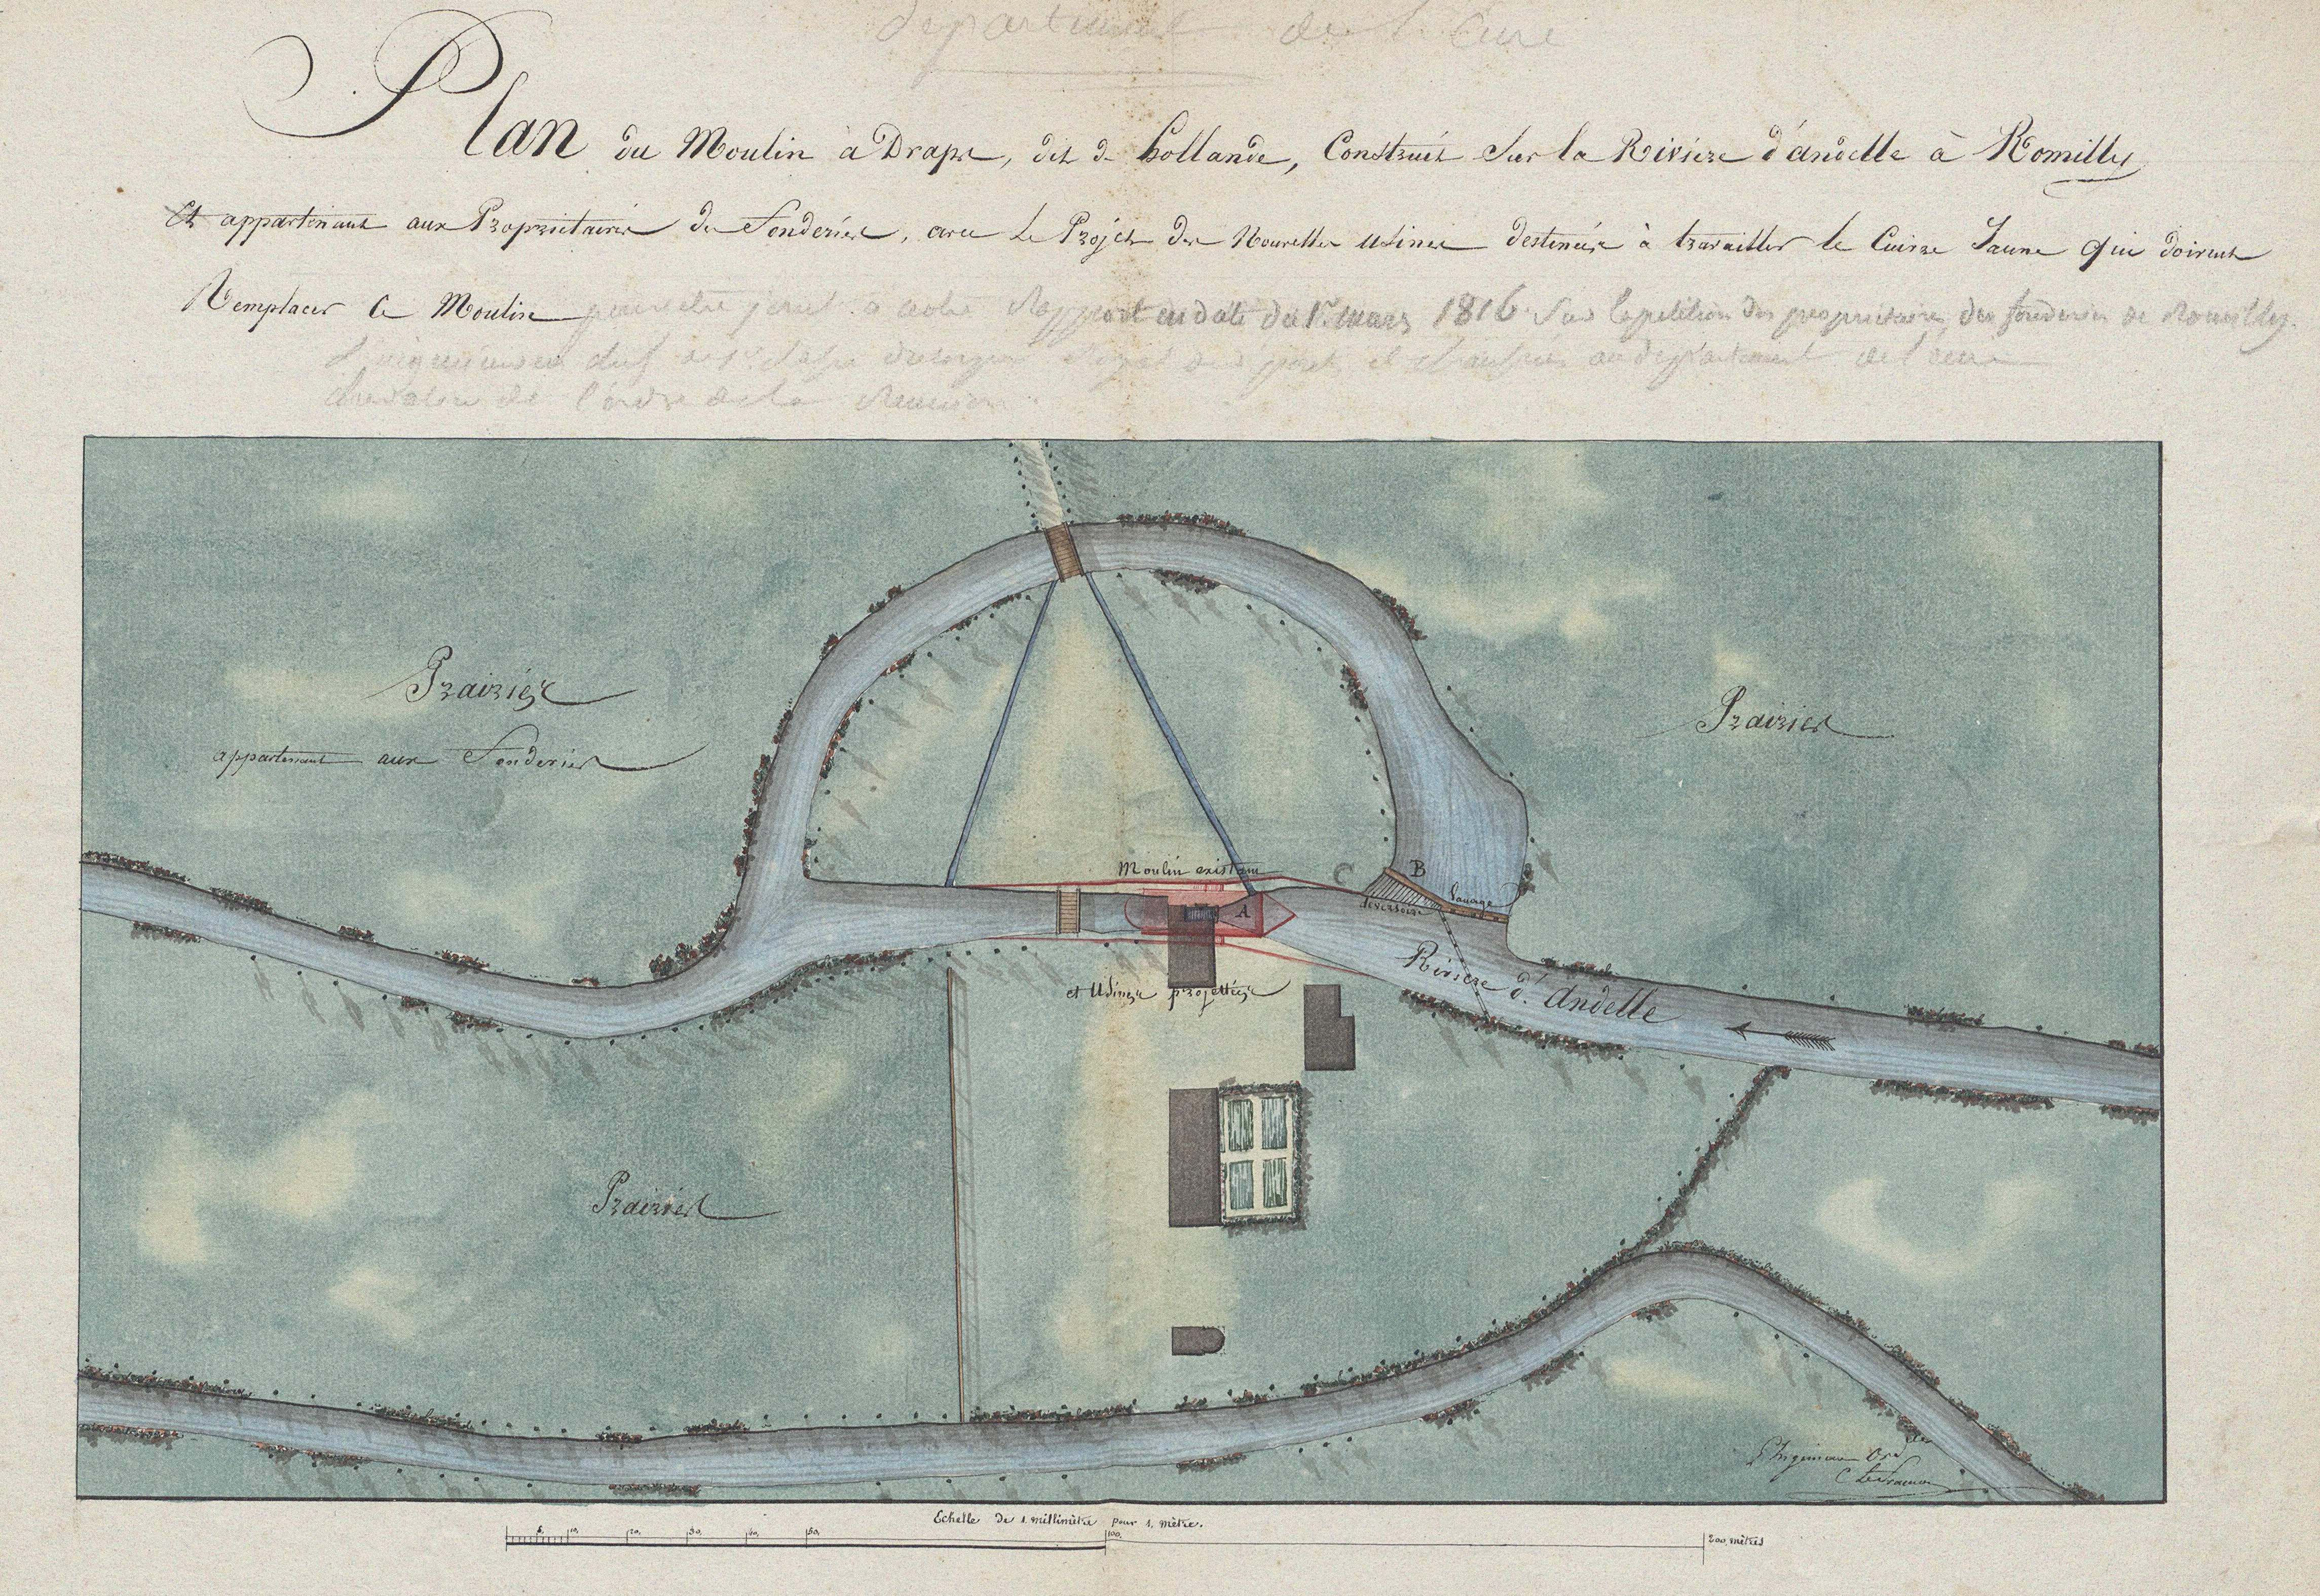 département de l'Eure
Plan du Moulin à Draps, dit de hollande, Construit Sur la Rivière d'andelle à Romilly
Et appartenant aux Propriétaires des Fonderies, avec le Projet des Nouvelles Usines destinées à travailler le Cuivre Jaune qui doivent
Remplacer ce Moulin pour être joint à notre Rapport en date du 1er mars 1816 Sur la pétition des propriétaires des fonderies de Romilly.
L'ingénieur chef au département de l'eure
chevalier de l'ordre de la Réunion.
Prairies
appartenant aux Fonderies
Prairies
Moulin existant
C
B
A
déversoir
Vanage
Rivière d'Andelle
et Usines projettées
Prairies
L'Ingénieur Ord
Echelle de 1 millimètre pour 1 mètre.
5, 10, 20, 30, 40, 50, 100, 200 mètres